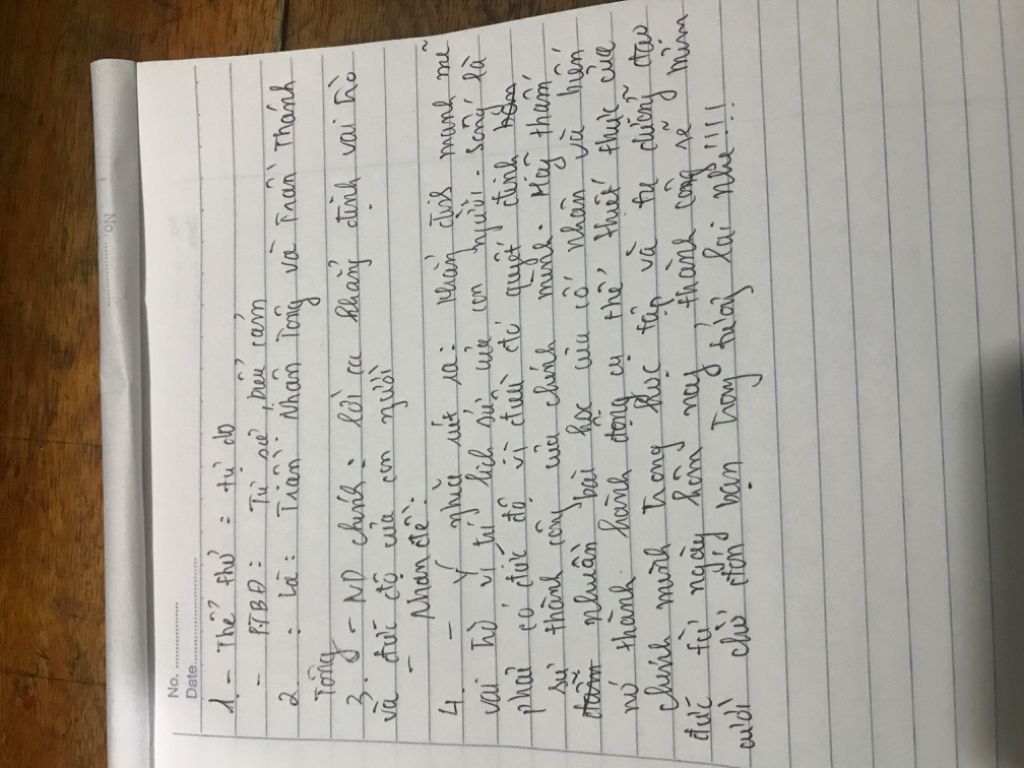 No. ..............
Date..................
1. - Thể thơ : tự do
- PTBĐ : Tự sự, biểu cảm
2 : Là : Trần Nhân Tông và Trần Thánh
Tông
3 - ND chính : lời ca khẳng định vai trò
và đức độ của con người
- Nhan đề :
4 - Ý nghĩa rút ra : khẳn định mạnh mẽ
vai trò vị trí lịch sử của con người . Sống là
phải có đức độ vì điều đó quyết định
sự thành công của chính mình . Hãy thấm
nhuần bài học của cổ nhân và biến
nó thành hành động cụ thể thiết thực của
chính mình trong học tập và tu dưỡng đạo
đức từ ngày hôm nay thành công sẽ mỉm
cười chờ đón bạn trong tương lai nhé!!!!